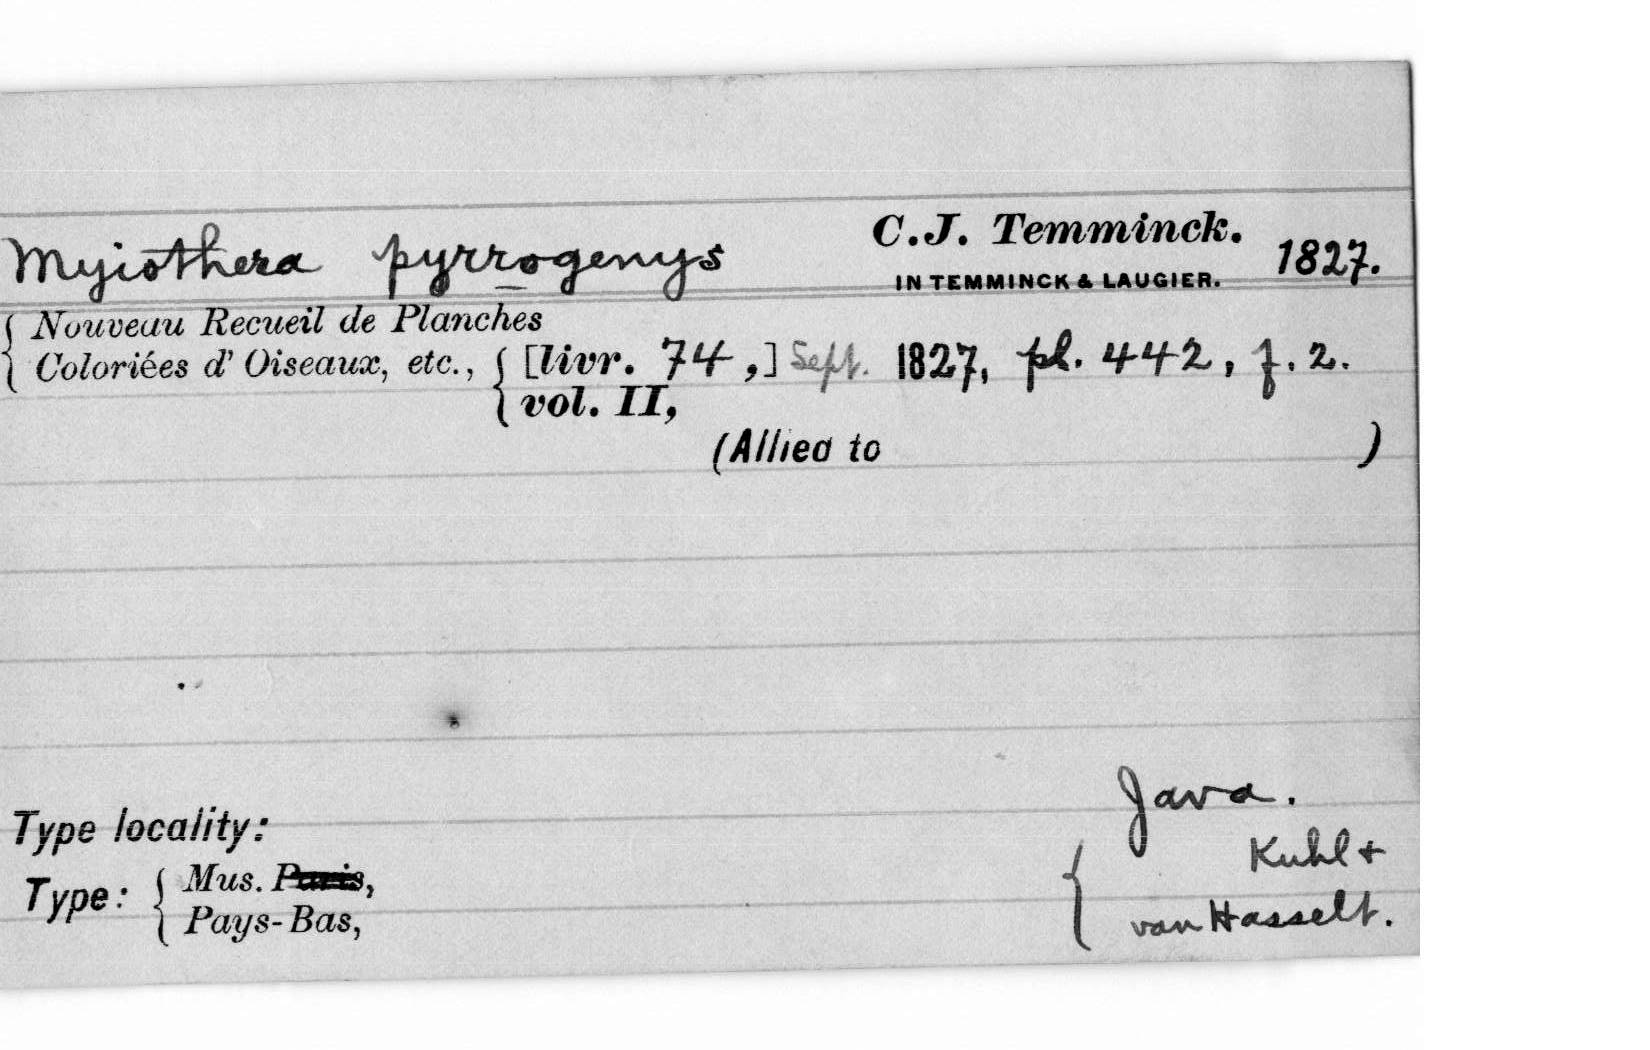 Myiothera pyrrogenys C.J. Temminck. 1827.
IN TEMMINCK & LAUGIER.
Nouveau Recueil de Planches
Coloriées d' Oiseaux, etc., [livr. 74,] Sept. 1827, pl. 442, f. 2.
vol. II,
(Allied to )
Java.
Type locality:
Kuhl +
Type: Mus. Paris,
Pays-Bas, van Hasselt.